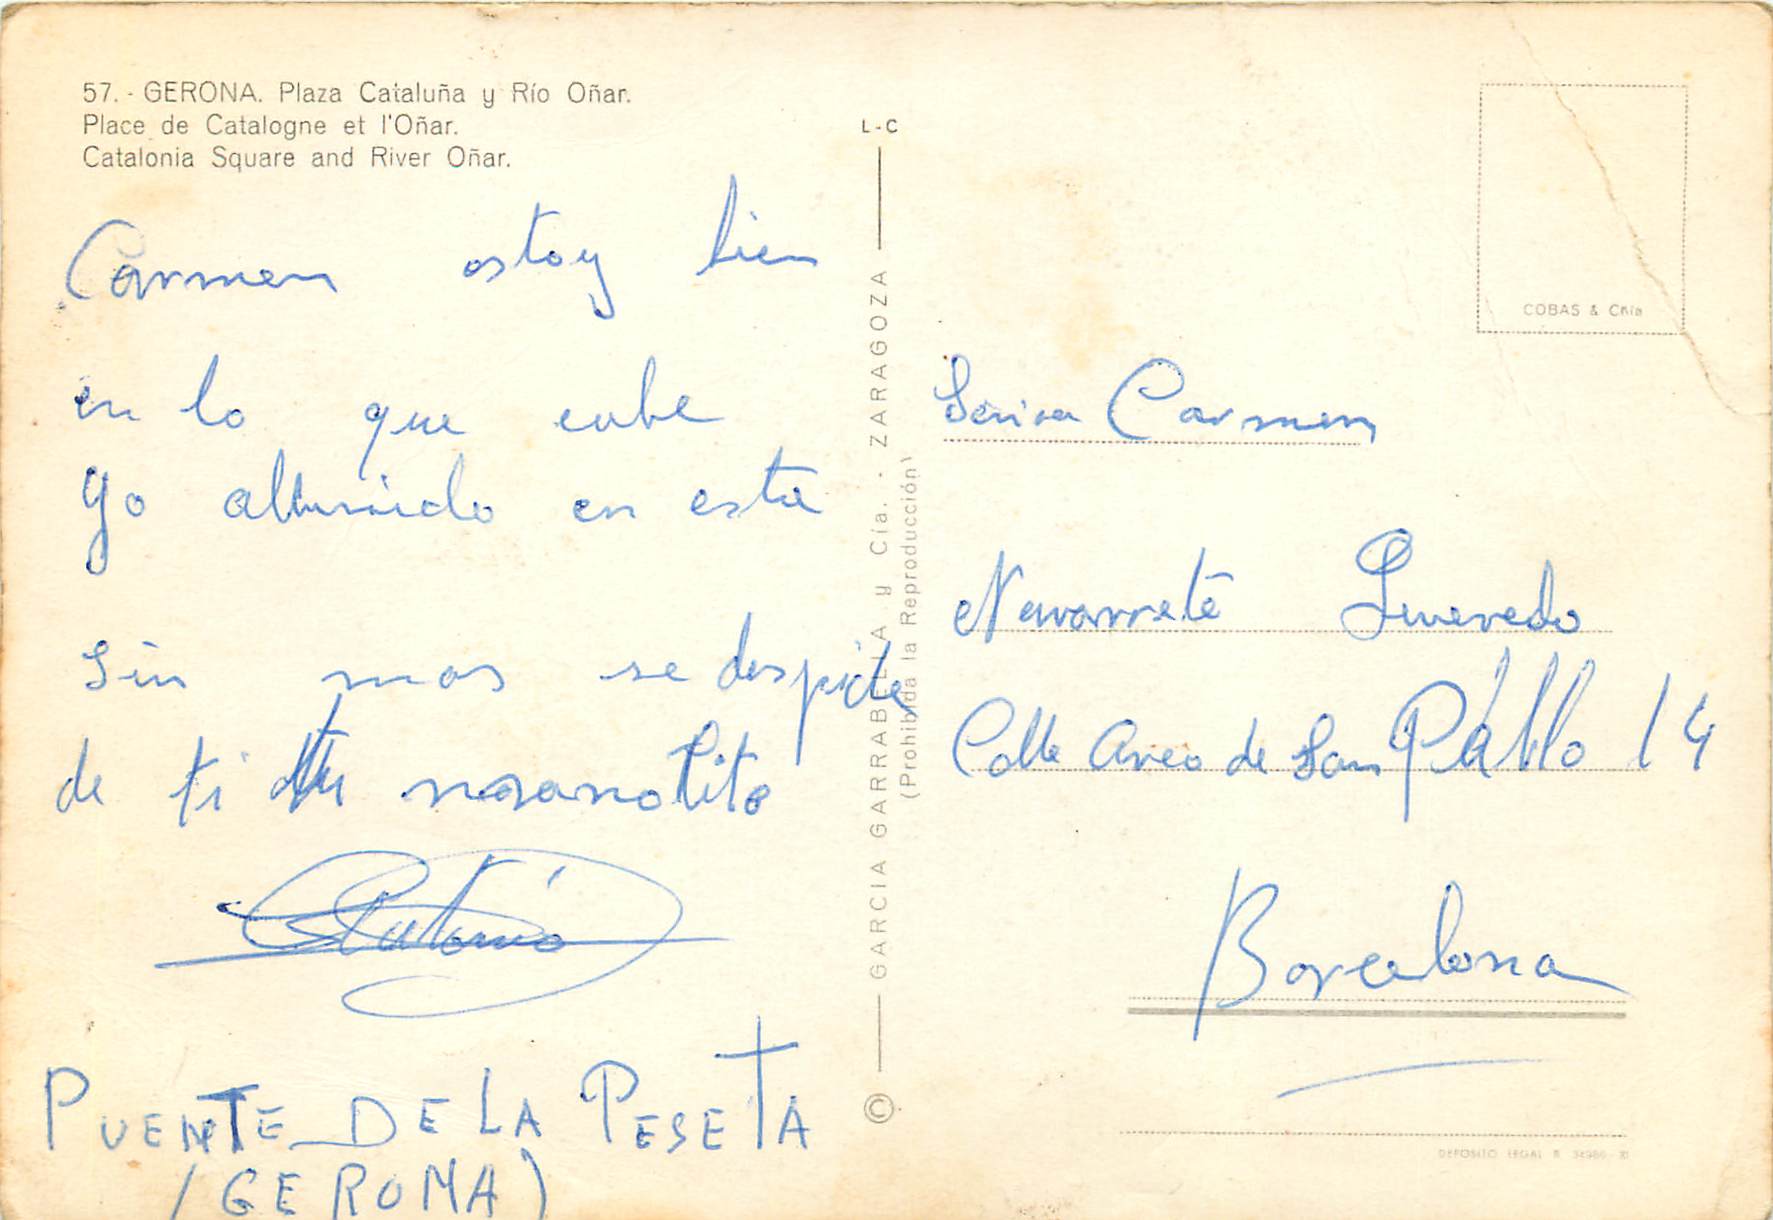 57. - GERONA. Plaza Cataluña y Río Oñar.
Place de Catalogne et l'Oñar.
Catalonia Square and River Oñar.
Carmen estoy bien
en lo que cabe
yo alburrido en esta
sin mas se despide
de ti tu
Antonio
PUENTE DE LA PESETA
(GERONA)
L-C
GARCIA GARRABELLA y Cía. - ZARAGOZA
(Prohibida la Reproducción)
©
COBAS & Cñía
Carmen
Navarrete Quevedo
Calle Arco de San Pablo 14
Barcelona
DEPOSITO LEGAL B.